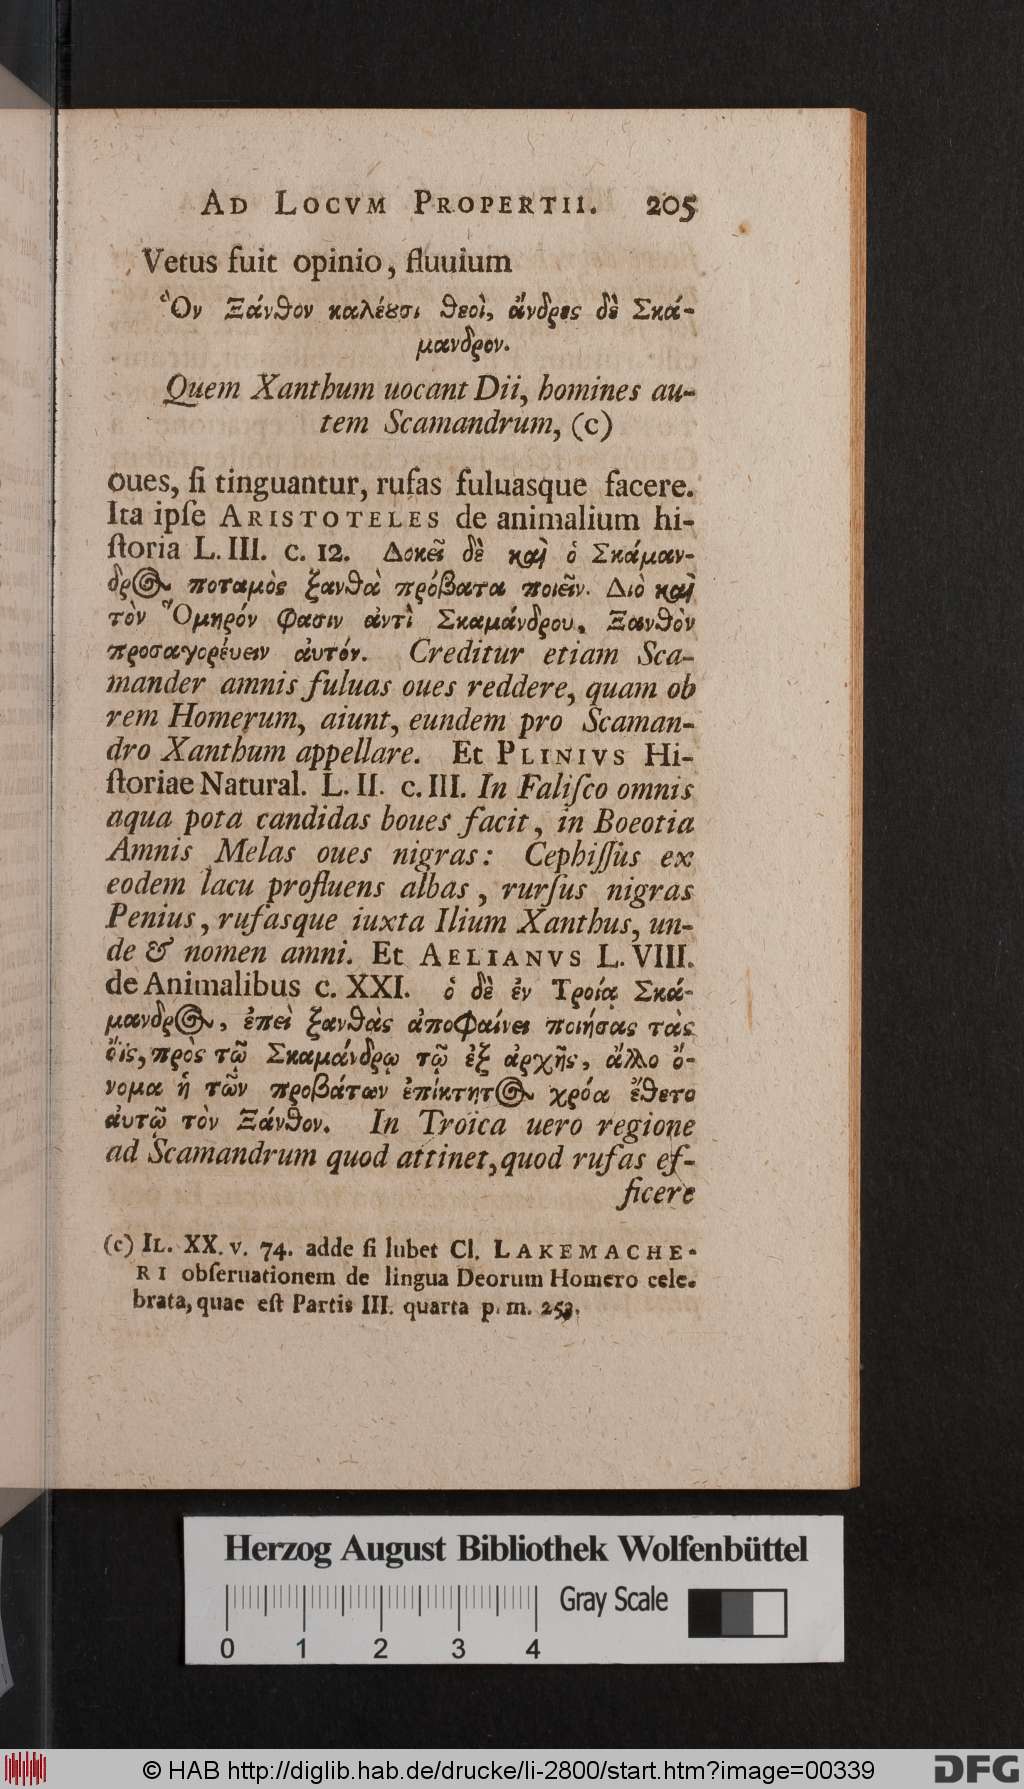 AD LOCVM PROPERTII. 205
Vetus fuit opinio, fluuium
Ὃν Ξάνθον καλέȣσι θεοὶ, ἄνδρες δὲ Σκά-
μανδρον.
Quem Xanthum uocant Dii, homines au-
tem Scamandrum, (c)
oues, ſi tinguantur, rufas fuluasque facere.
Ita ipſe ARISTOTELES de animalium hi-
ſtoria L. III. c. 12. Δοκεῖ δὲ καὶ ὁ Σκάμαν-
δρος ποταμὸς ξανθὰ πρόβατα ποιεῖν. Διὸ καὶ
τὸν Ὅμηρόν φασιν ἀντὶ Σκαμάνδρου, Ξανθὸν
προσαγορέυειν ἀυτόν. Creditur etiam Sca-
mander amnis fuluas oues reddere, quam ob
rem Homerum, aiunt, eundem pro Scaman-
dro Xanthum appellare. Et PLINIVS Hi-
ſtoriae Natural. L. II. c. III. In Faliſco omnis
aqua pota candidas boues facit, in Boeotia
Amnis Melas oues nigras: Cephiſſus ex
eodem lacu profluens albas, rurſus nigras
Penius, rufasque iuxta Ilium Xanthus, un-
de & nomen amni. Et AELIANVS L. VIII.
de Animalibus c. XXI. ὁ δὲ ἐν Τροίᾳ Σκά-
μανδρος, ἐπεὶ ξανθὰς ἀποφαίνει ποιήσας τὰς
ὄϊς, πρὸς τῷ Σκαμάνδρῳ τῷ ἐξ ἀρχῆς, ἄλλο ὄ-
νομα ἡ τῶν προβάτων ἐπίκτητος χρόα ἔθετο
ἀυτῷ τὸν Ξάνθον. In Troica uero regione
ad Scamandrum quod attinet, quod rufas ef-
ficere
(c) IL. XX. v. 74. adde ſi lubet Cl. LAKEMACHE-
RI obſeruationem de lingua Deorum Homero cele-
brata, quae eſt Partis III. quarta p. m. 253.
Herzog August Bibliothek Wolfenbüttel
Gray Scale
0 1 2 3 4
© HAB http://diglib.hab.de/drucke/li-2800/start.htm?image=00339
DFG